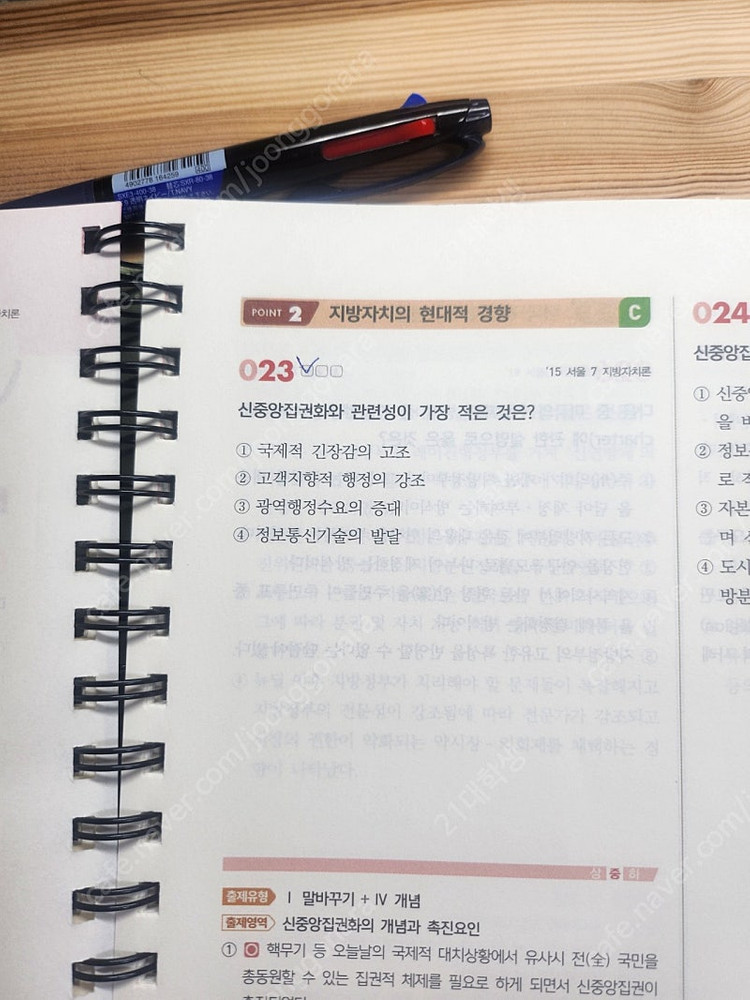 4902778 164259
400
SXE3-400-38 替芯SXR-80-38
치론
POINT 2 지방자치의 현대적 경향 C
023 '15 서울 7 지방자치론
신중앙집권화와 관련성이 가장 적은 것은?
① 국제적 긴장감의 고조
② 고객지향적 행정의 강조
③ 광역행정수요의 증대
④ 정보통신기술의 발달
상 중 하
출제유형 Ⅰ 말바꾸기 + Ⅳ 개념
출제영역 신중앙집권화의 개념과 촉진요인
① 핵무기 등 오늘날의 국제적 대치상황에서 유사시 전(全) 국민을
총동원할 수 있는 집권적 체제를 필요로 하게 되면서 신중앙집권이
024
신중앙집
① 신중
을 
② 정보
로 
③ 자본
며 
④ 도시
방분
cafe.naver.com/joonggonara